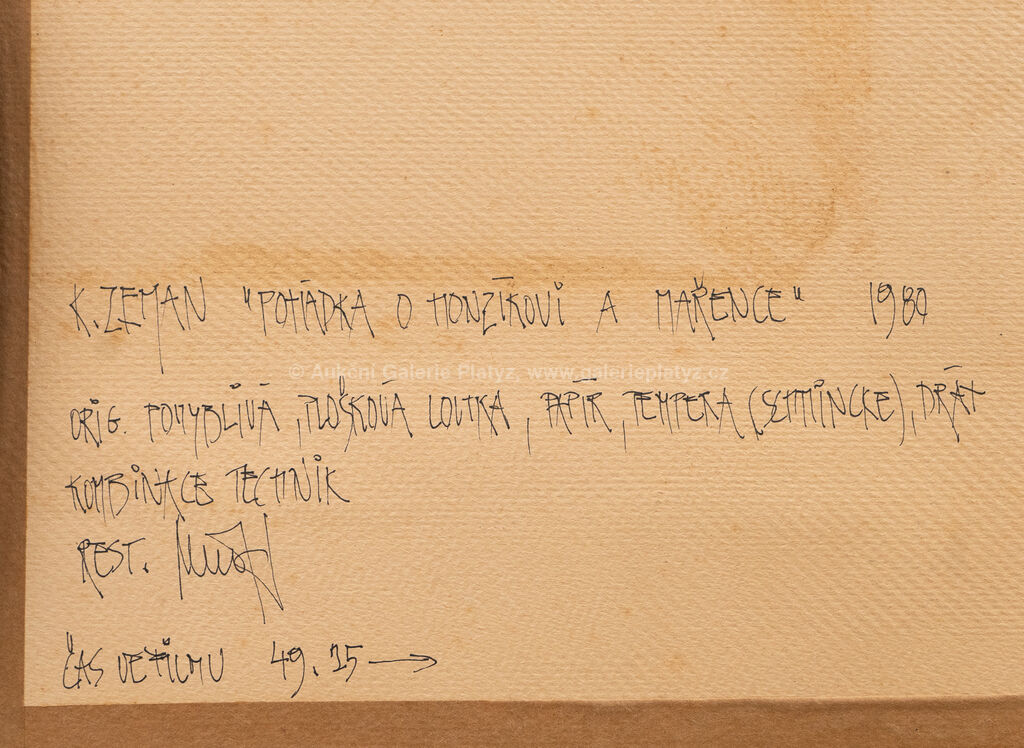 K. ZEMAN "POHÁDKA O HONZÍKOVI A MAŘENCE" 1980
© Aukční Galerie Platýz, www.galerieplatyz.cz
ORIG. POHYBLIVÁ, PLOŠKOVÁ LOUTKA, PAPÍR, TEMPERA (SCHMINCKE), DRÁT
KOMBINACE TECHNIK
REST.
ČAS VE FILMU 49.15 →